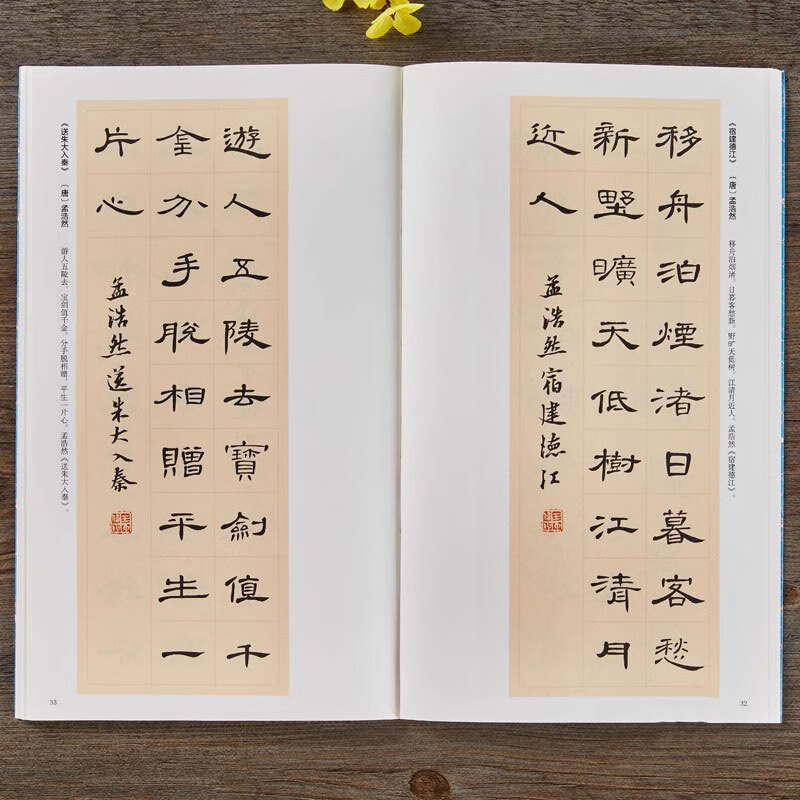 《宿建德江》 〔唐〕孟浩然
移舟泊烟渚，日暮客愁新。野旷天低树，江清月近人。孟浩然《宿建德江》。
移舟泊煙渚日暮客愁
新墅曠天低樹江清月
近人
孟浩然宿建德江
32
遊人五陵去寶劍值千
金分手脫相贈平生一
片心
孟浩然送朱大入秦
《送朱大入秦》 〔唐〕孟浩然
游人五陵去，宝剑值千金。分手脱相赠，平生一片心。孟浩然《送朱大入秦》。
33